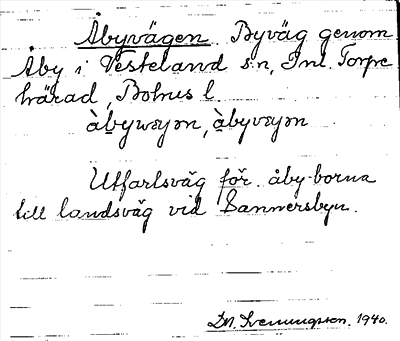 Åbyvägen Byväg genom
Åby i Vesteland sn, Inl. Torpe
härad, Bohus l.
àbywεγən, àbyvεγən
Utfartsväg för åby-borna
till landsväg vid Sannersbyn.
D.A. Svenungsson. 1940.